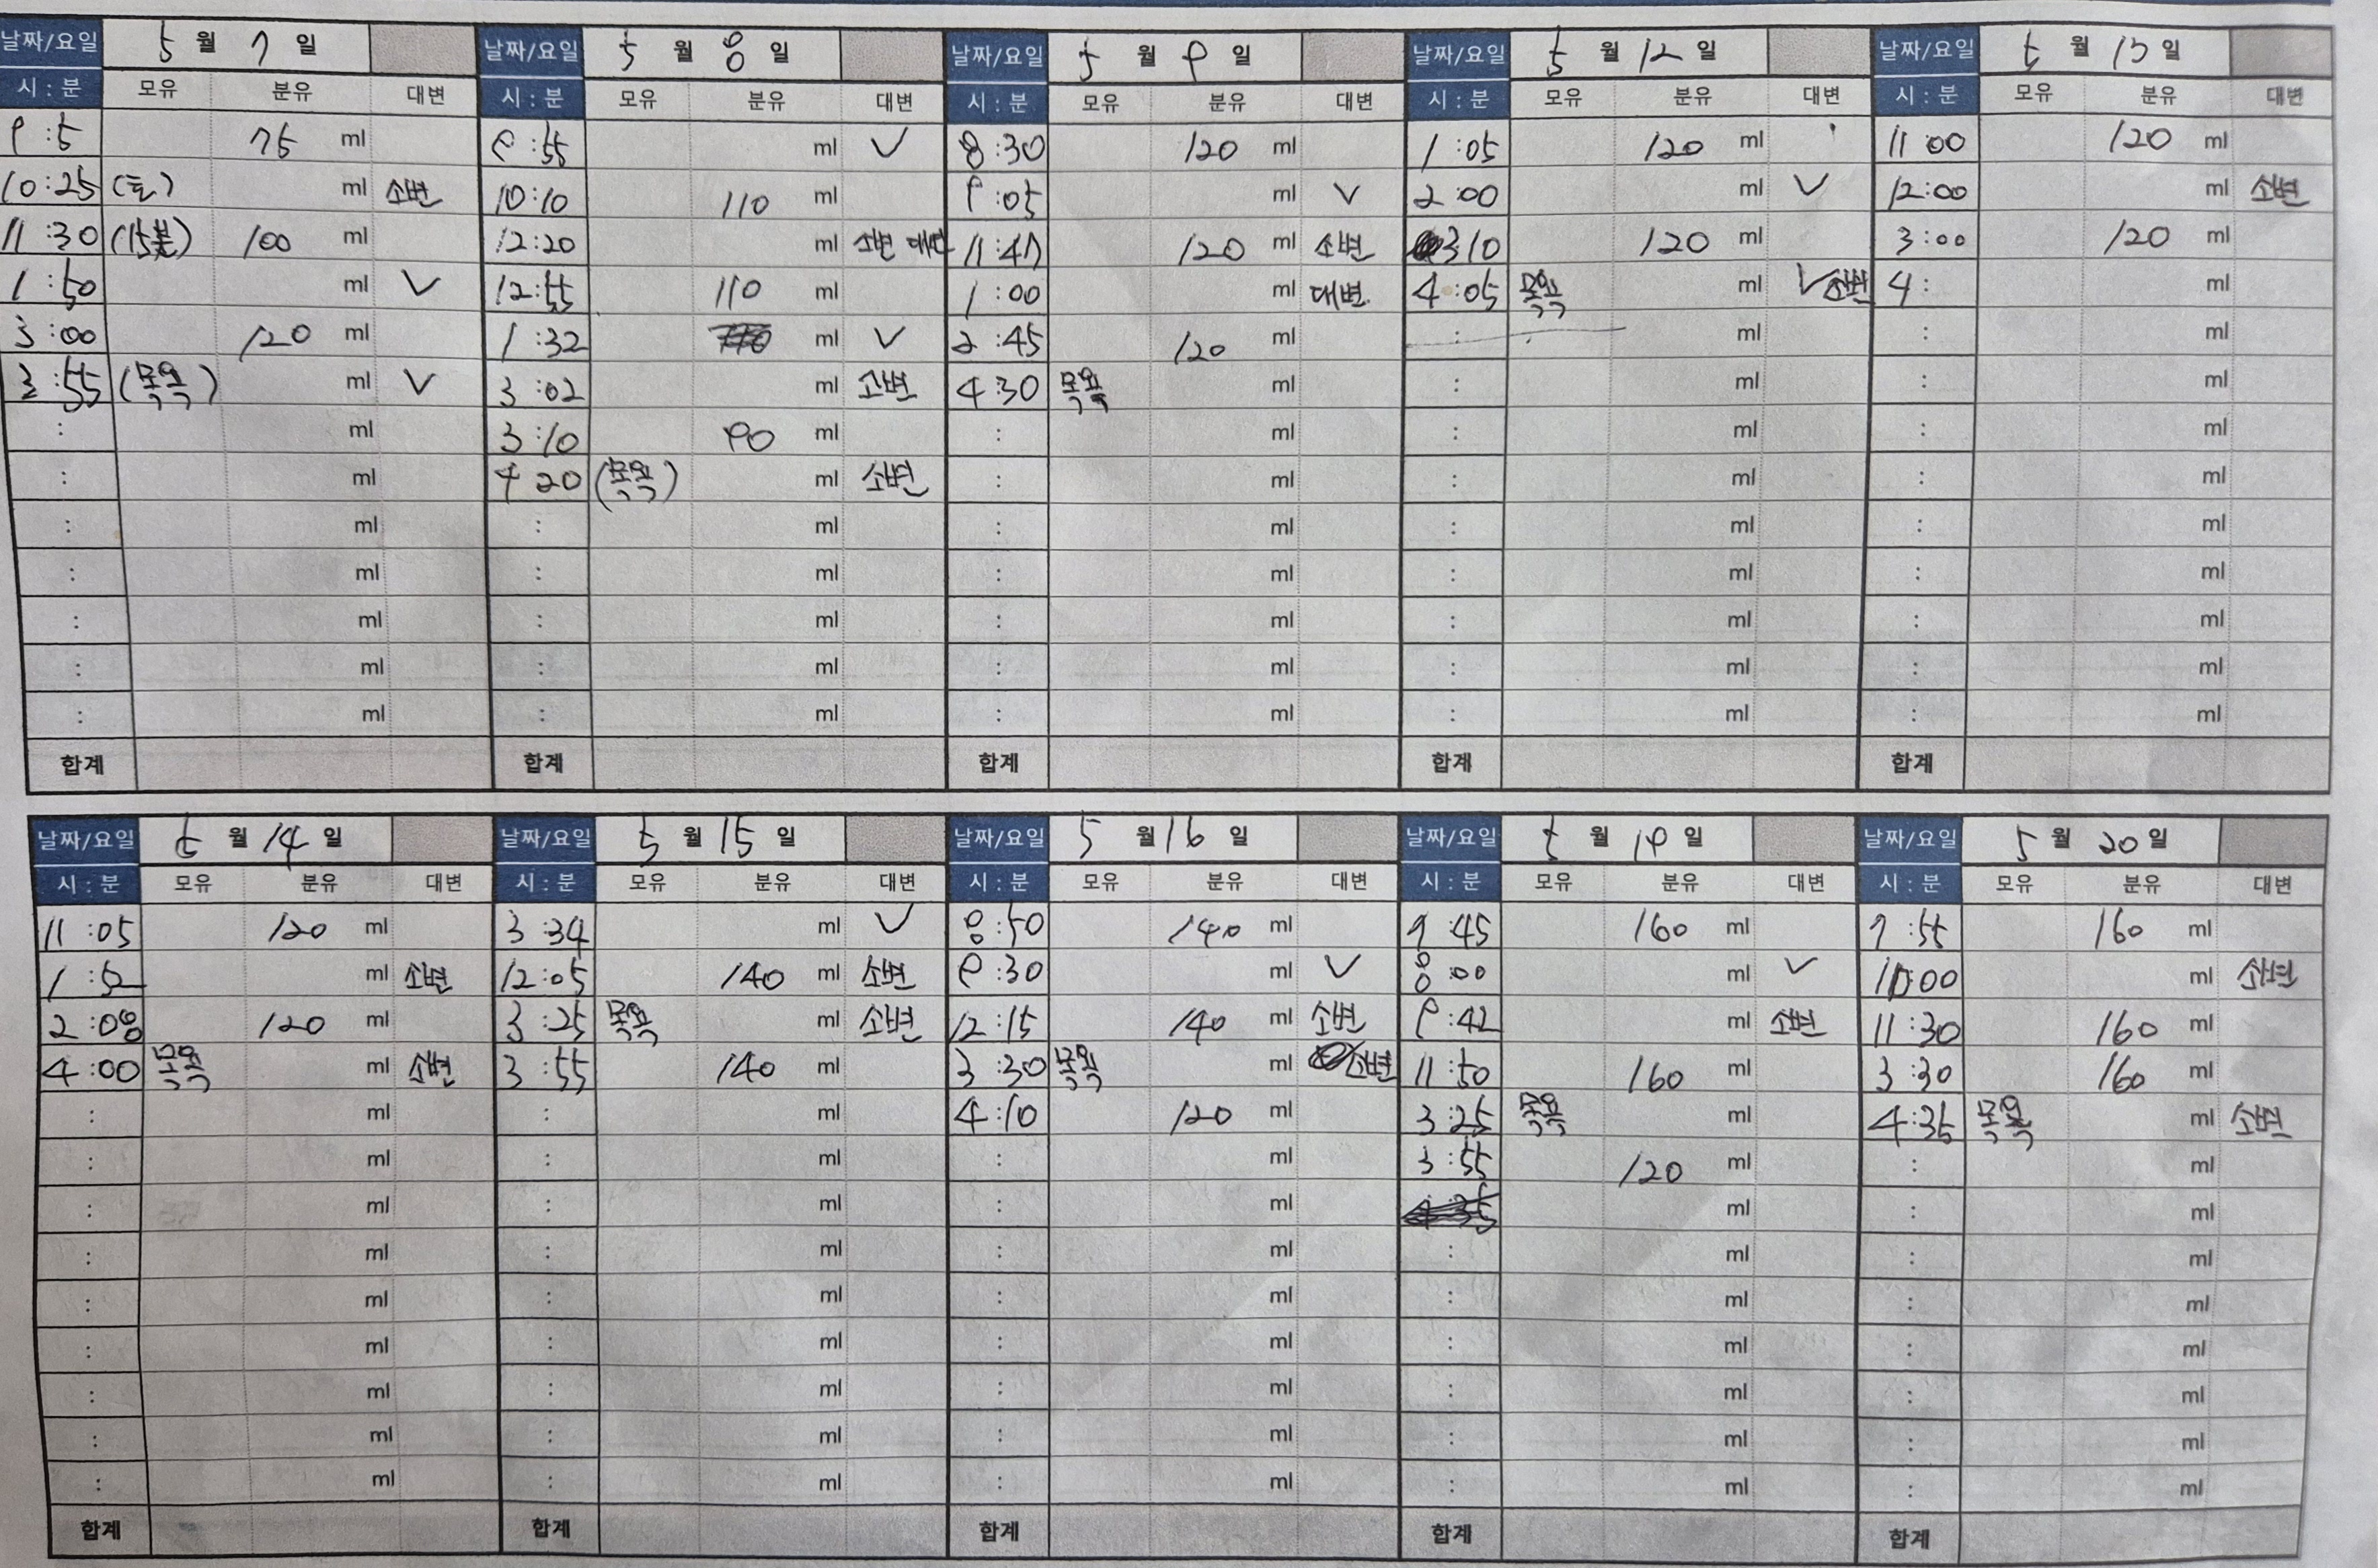 날짜/요일 5 월 7 일
시 : 분 모유 분유 대변
9 : 5 75 ml
10 : 25 (토) ml 소변
11 : 30 (15분) 100 ml
1 : 50 ml V
3 : 00 120 ml
3 : 55 (목욕) ml V
: ml
: ml
: ml
: ml
: ml
: ml
: ml
합계
날짜/요일 5 월 8 일
시 : 분 모유 분유 대변
9 : 55 ml V
10 : 10 110 ml
12 : 20 ml 소변 대변
12 : 55 110 ml
1 : 32 ml V
3 : 02 ml 소변
3 : 10 90 ml
4 20 (목욕) ml 소변
: ml
: ml
: ml
: ml
: ml
합계
날짜/요일 5 월 9 일
시 : 분 모유 분유 대변
8 : 30 120 ml
9 : 05 ml V
11 : 47 120 ml 소변
1 : 00 ml 대변
2 : 45 120 ml
4 : 30 목욕 ml
: ml
: ml
: ml
: ml
: ml
: ml
: ml
합계
날짜/요일 5 월 12 일
시 : 분 모유 분유 대변
1 : 05 120 ml
2 : 00 ml V
3 10 120 ml
4 : 05 목욕 ml V 소변
: ml
: ml
: ml
: ml
: ml
: ml
: ml
: ml
: ml
합계
날짜/요일 5 월 13 일
시 : 분 모유 분유 대변
11 00 120 ml
12 : 00 ml 소변
3 : 00 120 ml
4 : ml
: ml
: ml
: ml
: ml
: ml
: ml
: ml
: ml
: ml
합계
날짜/요일 5 월 14 일
시 : 분 모유 분유 대변
11 : 05 120 ml
1 : 52 ml 소변
2 : 08 120 ml
4 : 00 목욕 ml 소변
: ml
: ml
: ml
: ml
: ml
: ml
: ml
: ml
: ml
합계
날짜/요일 5 월 15 일
시 : 분 모유 분유 대변
3 : 34 ml V
12 : 05 140 ml 소변
3 : 25 목욕 ml 소변
3 : 55 140 ml
: ml
: ml
: ml
: ml
: ml
: ml
: ml
: ml
: ml
합계
날짜/요일 5 월 16 일
시 : 분 모유 분유 대변
8 : 50 140 ml
9 : 30 ml V
12 : 15 140 ml 소변
3 : 30 목욕 ml 소변
4 : 10 120 ml
: ml
: ml
: ml
: ml
: ml
: ml
: ml
: ml
합계
날짜/요일 5 월 19 일
시 : 분 모유 분유 대변
7 : 45 160 ml
8 : 00 ml V
9 : 42 ml 소변
11 : 50 160 ml
3 : 25 목욕 ml
3 : 55 120 ml
ml
: ml
: ml
: ml
: ml
: ml
: ml
합계
날짜/요일 5 월 20 일
시 : 분 모유 분유 대변
7 : 55 160 ml
10 : 00 ml 소변
11 : 30 160 ml
3 : 30 160 ml
4 : 35 목욕 ml 소변
: ml
: ml
: ml
: ml
: ml
: ml
: ml
: ml
합계